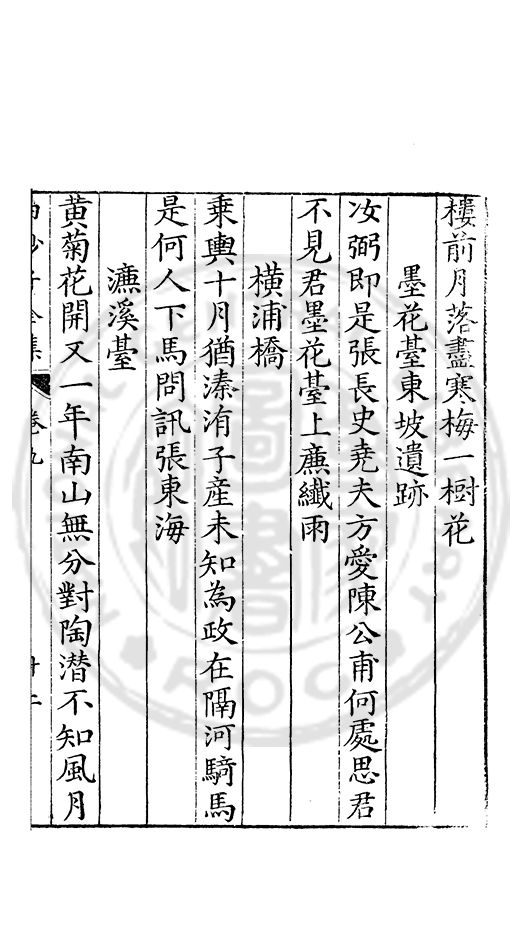 樓前月落盡寒梅一樹花
墨花臺東坡遺跡
汝弼即是張長史堯夫方愛陳公甫何處思君
不見君墨花臺上廉纖雨
橫浦橋
乗輿十月猶溱洧子產未知為政在隔河騎馬
是何人下馬問訊張東海
濂溪臺
黄菊花開又一年南山無分對陶潜不知風月
白沙子全集 卷九